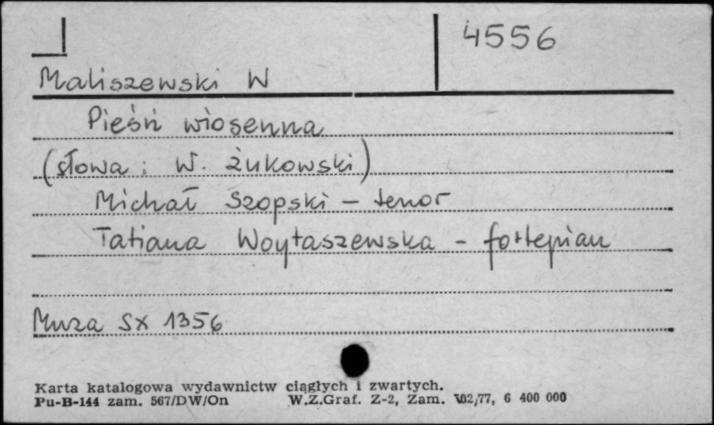 4556
Maliszewski W
Pieśń wiosenna
(słowa: W. Żukowski)
Michał Szopski - tenor
Tatiana Woytaszewska - fortepian
Muza SX 1356
Karta katalogowa wydawnictw ciągłych i zwartych.
Pu-B-144 zam. 567/DW/On W.Z.Graf. Z-2, Zam. 102/77, 6 400 000